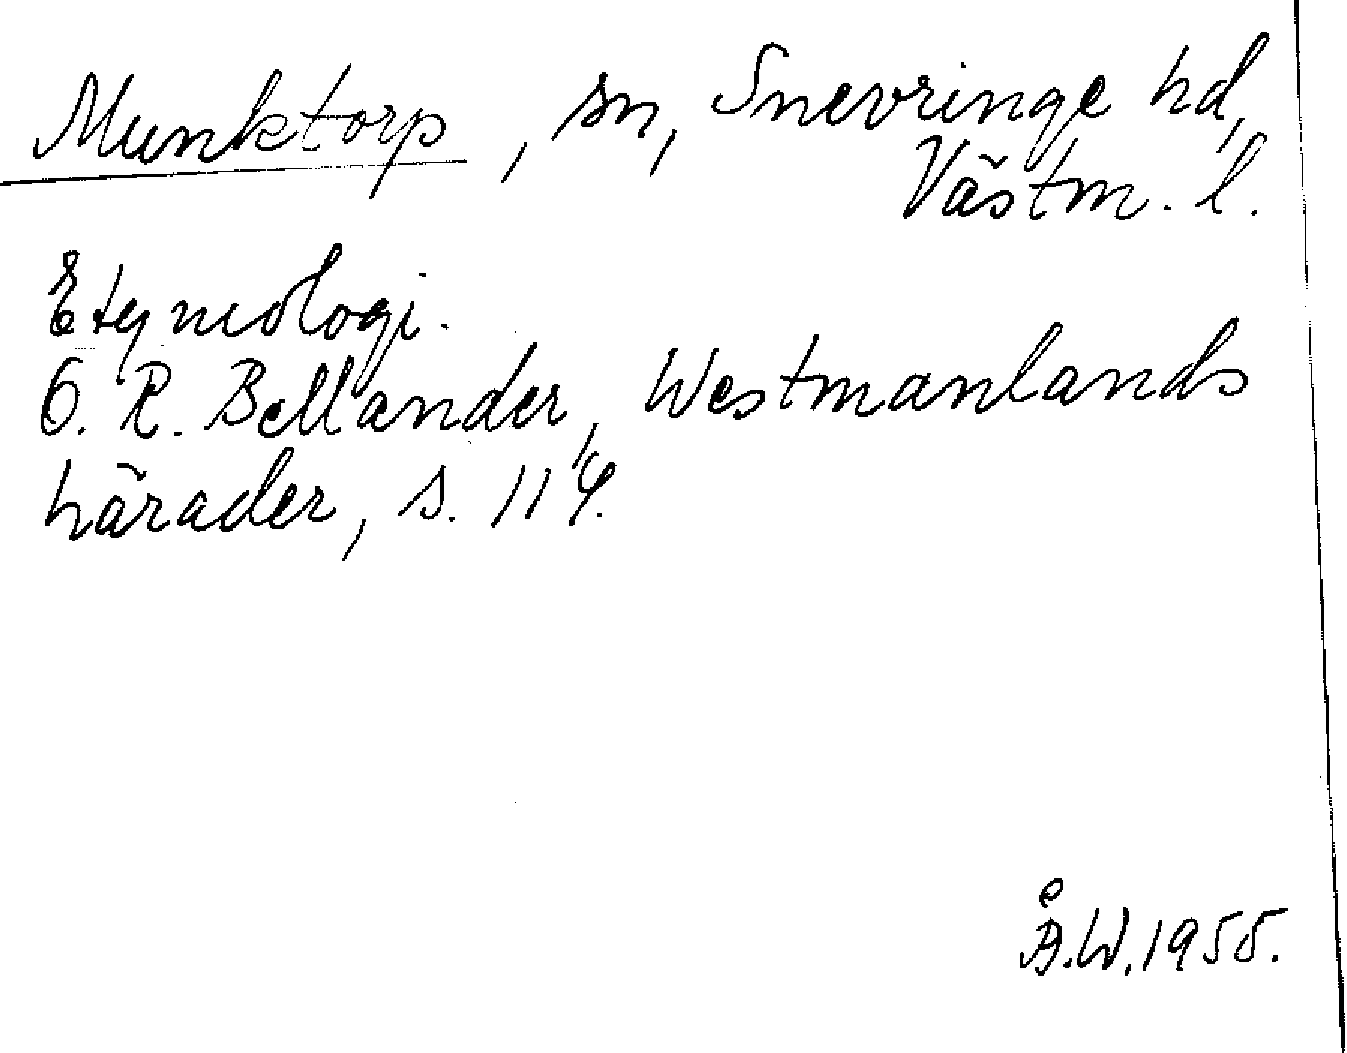 Munktorp, sn, Snevringe hd,
Västm. l.
Etymologi.
O. R. Bellander, Westmanlands
härader, s. 114.
Å.W. 1955.